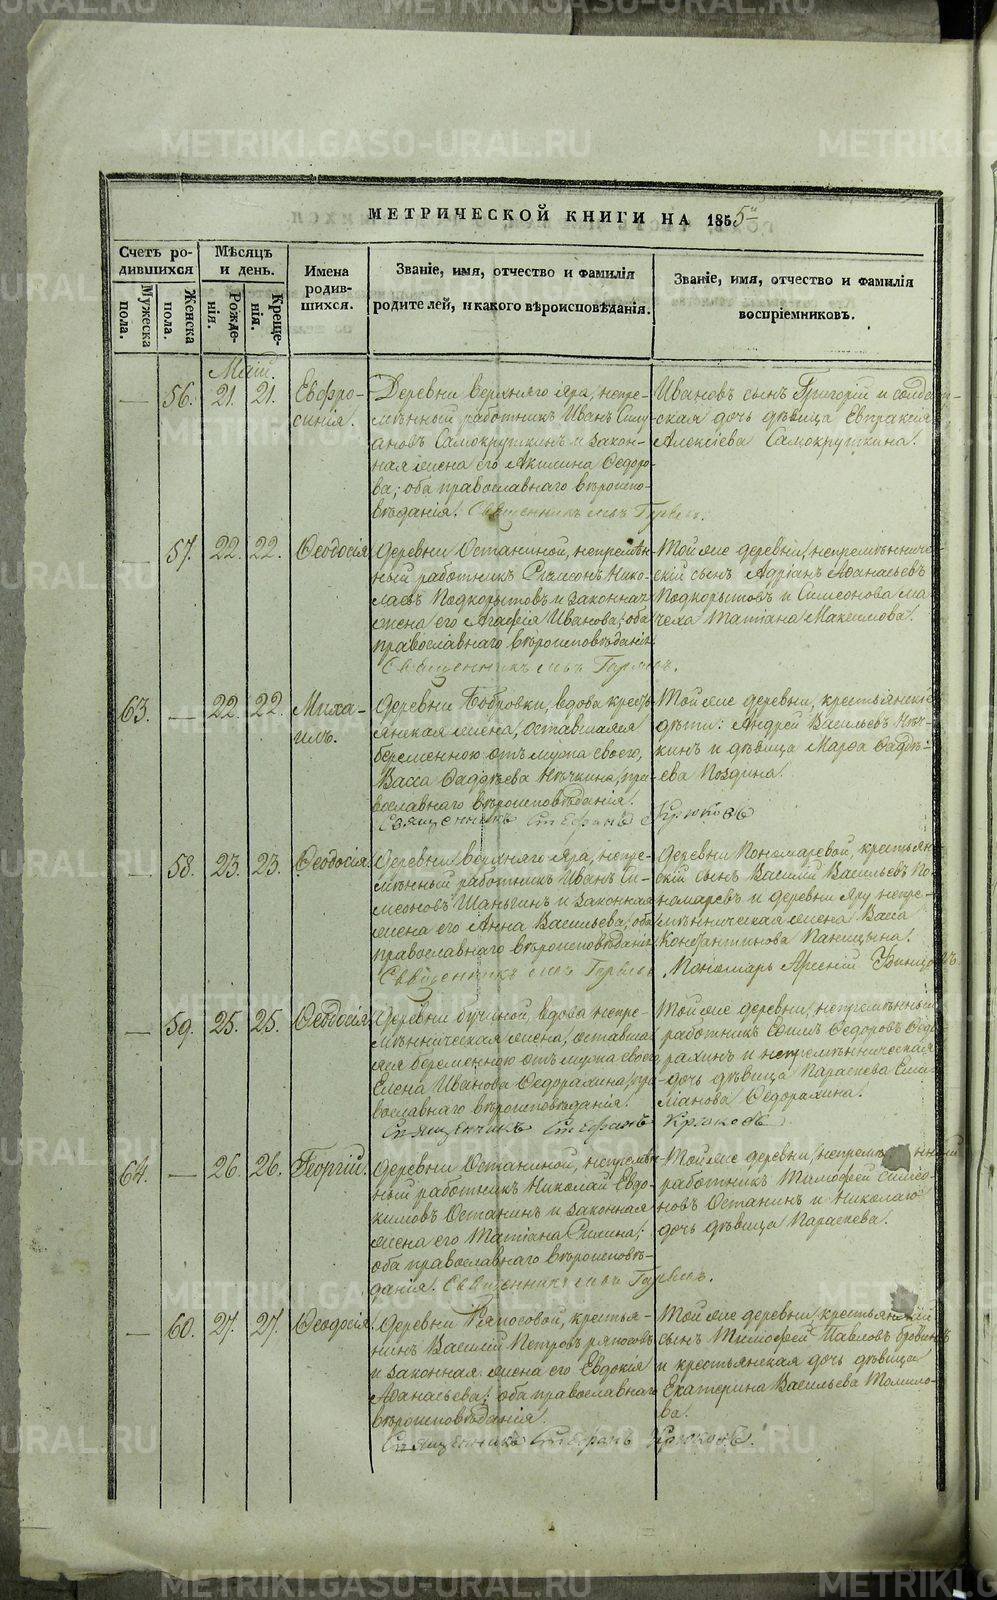 METRIKI.GASO-URAL.RU
МЕТРИЧЕСКОЙ КНИГИ НА 1855й
Счетъ ро-
дившихся
Мужеска
пола.
Женска
пола.
Мѣсяцъ
и день.
Рожде-
нія.
Креще-
нія.
Имена
родив-
шихся.
Званіе, имя, отчество и фамилія
родителей, и какого вѣроисповѣданія.
Званіе, имя, отчество и фамилія
воспріемниковъ.
Маій.
— 56. 21. 21. Евфро-
синія.
Деревни Верхняго Яра, непре-
мѣнный работникъ Иванъ Силу-
ановъ Самокруткинъ и закон-
ная жена его Акилина Ѳедоро-
ва; оба православнаго вѣроиспо-
вѣданія.
Ивановъ сынъ Григорій и солдат-
ская дочь дѣвица Евпраксія
Алексіева Самокруткина.
— 57. 22. 22. Ѳеодосія
Деревни Останиной, непремѣн-
ный работникъ Симеонъ Нико-
лаевъ Подкорытовъ и законная
жена его Агафія Иванова; оба
православнаго вѣроисповѣданія.
Той же деревни, непремѣнниче-
скій сынъ Адріанъ Аѳанасьевъ
Подкорытовъ и Симеонова ма-
чеха Татіана Максимова.
63. — 22. 22. Миха-
илъ.
Деревни Бобровки, вдова кресть-
янская жена, оставшаяся
беременною отъ мужа своего,
Васса Ѳаддѣева Нѣчкина, пра-
вославнаго вѣроисповѣданія.
Священникъ Стефанъ Крюковъ
Той же деревни, крестьянскіе
дѣти: Андрей Васильевъ Нѣч-
кинъ и дѣвица Марѳа Ѳаддѣ-
ева Поздина.
— 58. 23. 23. Ѳеодосія.
Деревни Верхняго Яра, непре-
мѣнный работникъ Иванъ Си-
меоновъ Шаньгинъ и законная
жена его Анна Васильева, оба
православнаго вѣроисповѣданія
Деревни Пономаревой, крестьян-
скій сынъ Василій Васильевъ По-
номаревъ и деревни Яру непре-
мѣнническая жена Васса
Константинова Паницына.
Пономарь Арсеній
— 59. 25. 25. Ѳеодосія
Деревни Бучиной, вдова непре-
мѣнническая жена, оставша-
яся беременною отъ мужа своего
Елена Иванова Ѳедорахина, пра-
вославнаго вѣроисповѣданія.
Священникъ Стефанъ Крюковъ
Той же деревни, непремѣнный
работникъ Ефимъ Ѳедоровъ Ѳедо-
рахинъ и непремѣнническая
дочь дѣвица Параскева Еми-
ліанова Ѳедорахина.
64. — 26. 26. Георгій.
Деревни Останиной, непремѣн-
ный работникъ Николай Евдо-
кимовъ Останинъ и законная
жена его Татіана
оба православнаго вѣроисповѣ-
данія.
Той же деревни, непремѣнный
работникъ Тимофей Симео-
новъ Останинъ и Николаю
дочь дѣвица Параскева.
— 60. 27. 27. Ѳеодосія.
Деревни Ряпосовой, крестья-
нинъ Василій Петровъ Ряпосовъ
и законная жена его Евдокія
Аѳанасьева; оба православнаго
вѣроисповѣданія.
Священникъ Стефанъ Крюковъ.
Той же деревни, крестьянскій
сынъ Тимофей Павловъ
и крестьянская дочь дѣвица
Екатерина Васильева Томило-
ва.